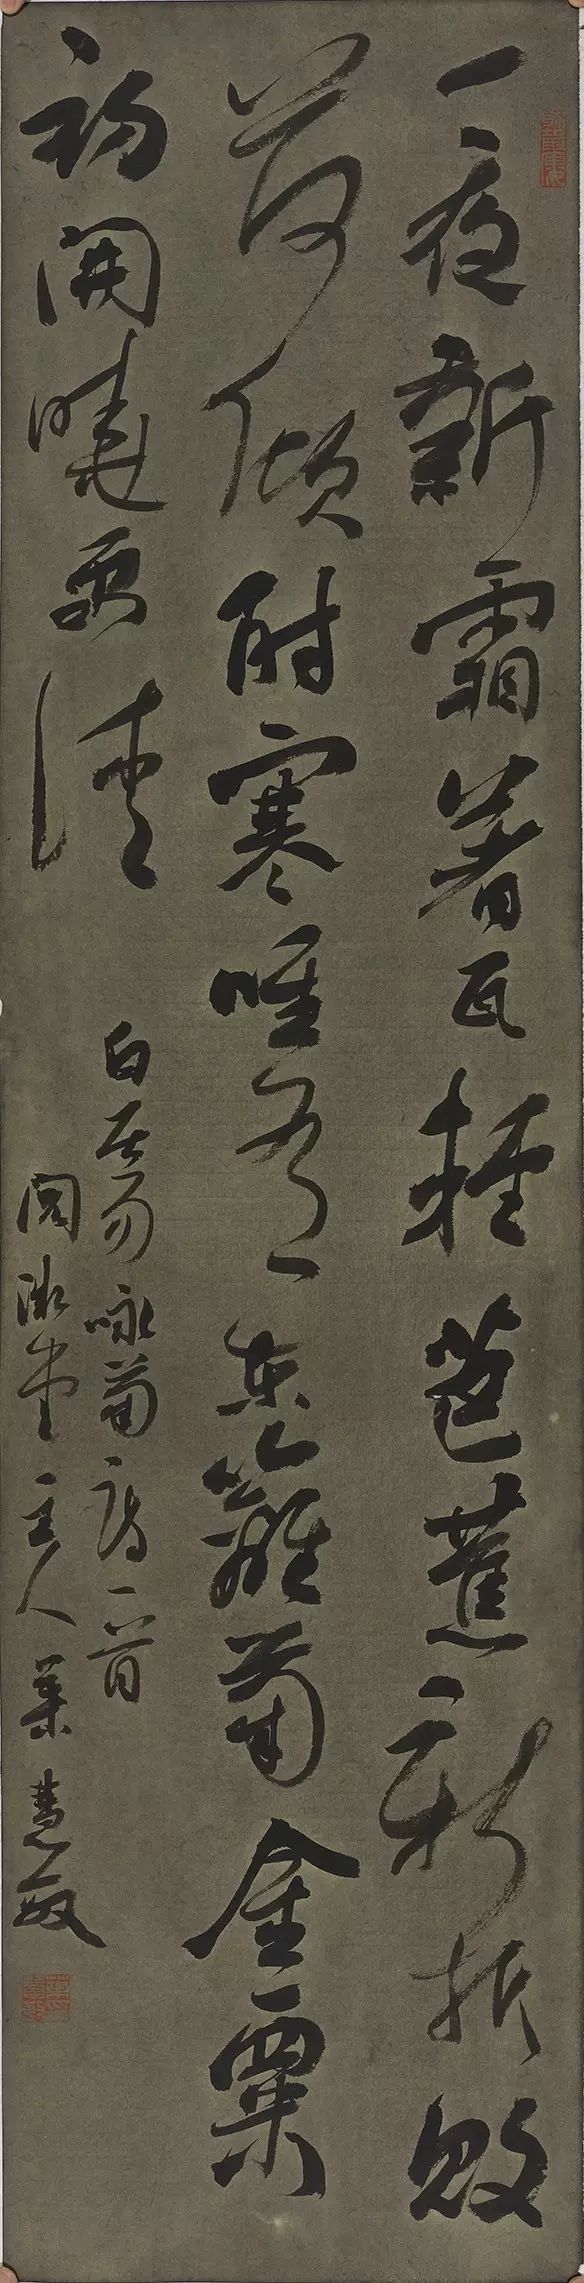 一夜新霜著瓦輕芭蕉新折敗
荷傾耐寒唯有東籬菊金粟
初開曉更清
白居易咏菊詩一首
閱微堂主人葉慧敏